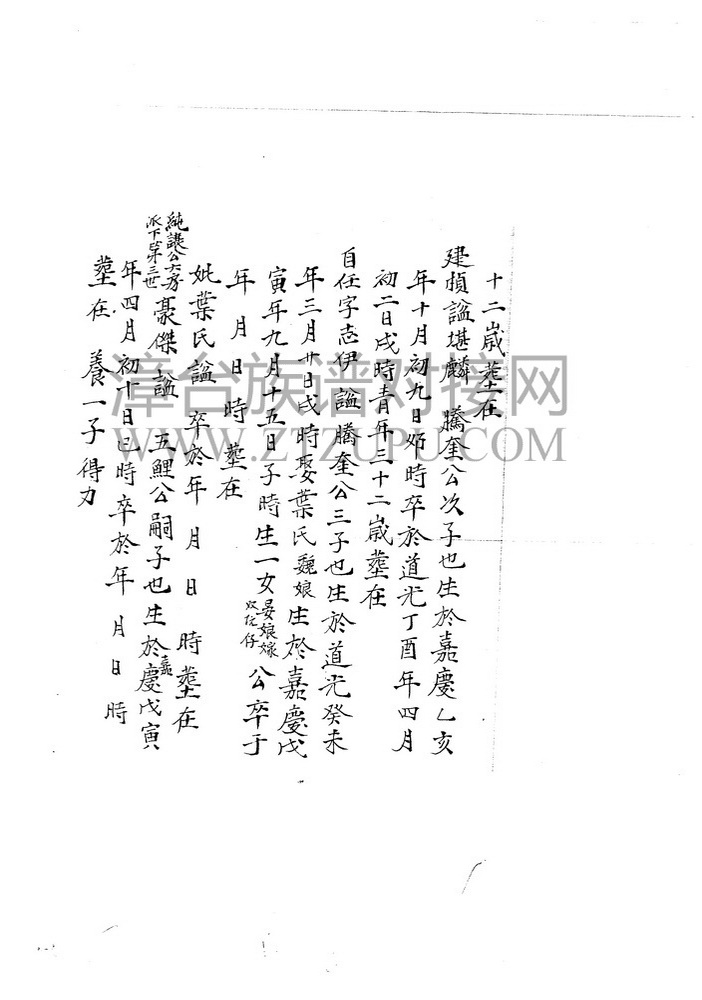 十二嵗塟在
建楨諡堪麟 騰奎公次子也生於嘉慶乙亥
年十月初九日夘時卒於道光丁酉年四月
初二日戌時青年三十二嵗塟在
自任字志伊諡 騰奎公三子也生於道光癸未
年三月廿日戌時娶葉氏魏娘生於嘉慶戊
寅年九月十五日子時生一女晏娘嫁 公卒于
年 月 日 時 塟在
妣葉氏諡 卒於年 月 日 時塟在
純讓公六房派下第三世
豪傑諡 五鯉公嗣子也生於嘉慶戊寅
年四月初十日巳時卒於年 月 日 時
塟在 養一子得力
漳台族谱对接网
WWW.ZTZUPU.COM